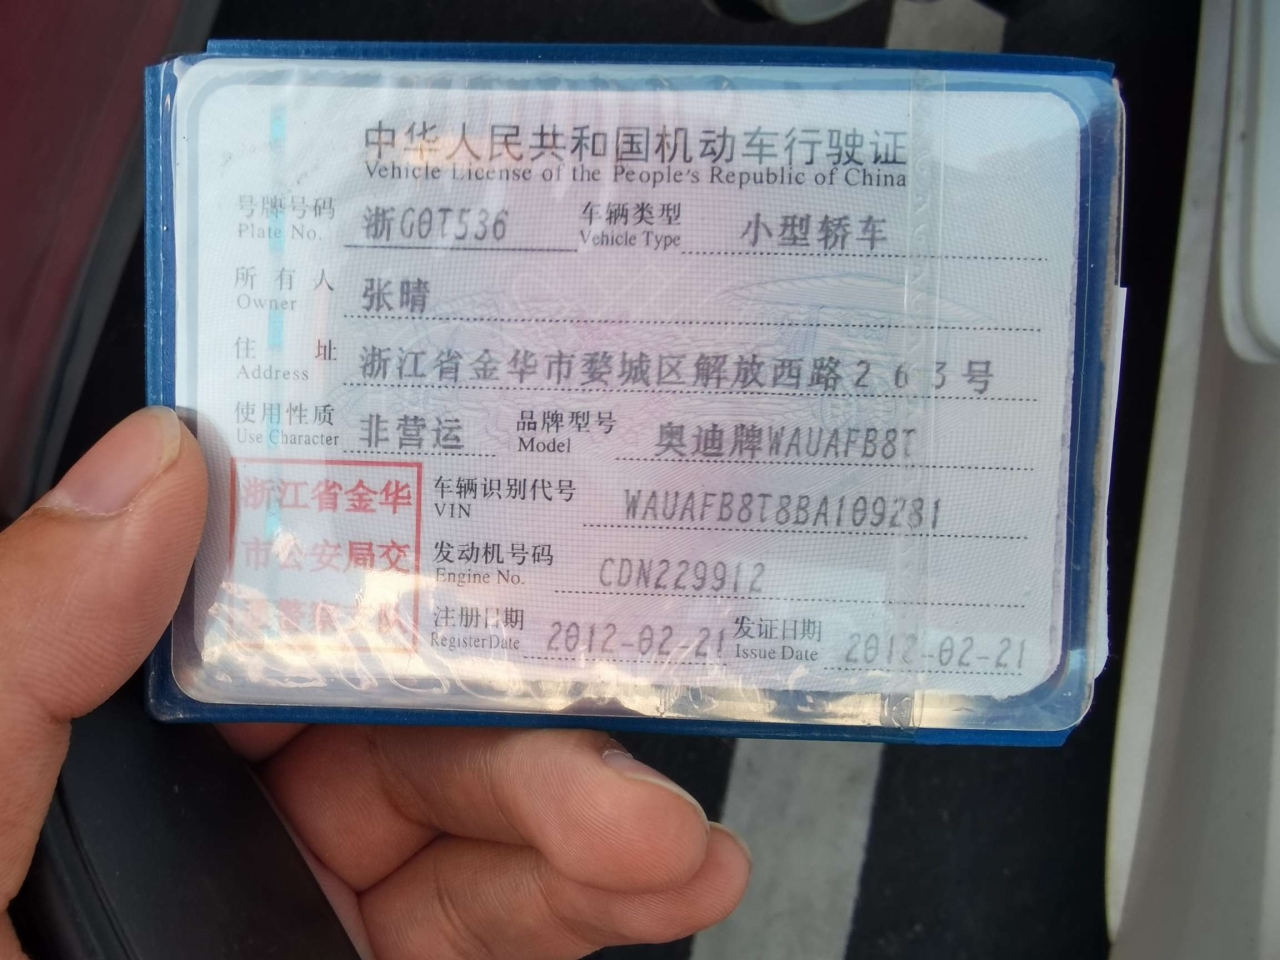 中华人民共和国机动车行驶证
Vehicle License of the People's Republic of China
号牌号码 浙G0T536 车辆类型 小型轿车
Plate No. Vehicle Type
所有人 张晴
Owner
住址 浙江省金华市婺城区解放西路263号
Address
使用性质 非营运 品牌型号 奥迪牌WAUAFB8T
Use Character Model
浙江省金华
市公安局交
车辆识别代号 WAUAFB8T8BA109281
VIN
发动机号码 CDN229912
Engine No.
注册日期 2012-02-21 发证日期 2012-02-21
Register Date Issue Date